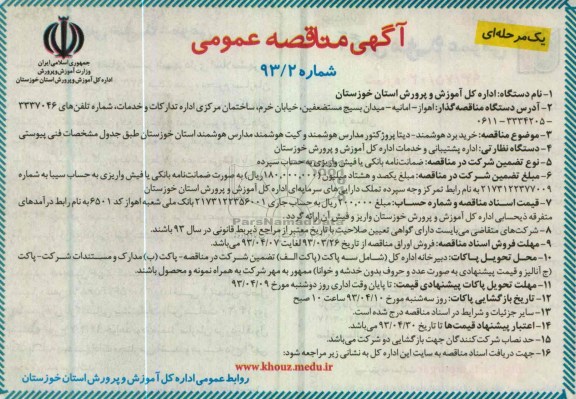 یک مرحله‌ای
آگهی مناقصه عمومی
شماره ۹۳/۲
جمهوری اسلامی ایران
وزارت آموزش و پرورش
اداره کل آموزش و پرورش استان خوزستان
۱- نام دستگاه: اداره کل آموزش و پرورش استان خوزستان
۲- آدرس دستگاه مناقصه‌گذار: اهواز - امانیه - میدان بسیج مستضعفین، خیابان خرم، ساختمان مرکزی اداره تدارکات و خدمات، شماره تلفن‌های ۳۳۳۷۰۴۶
۰۶۱۱-۳۳۳۴۲۰۵ -
۳- موضوع مناقصه: خرید برد هوشمند- دیتا پروژکتور مدارس هوشمند و کیت هوشمند مدارس هوشمند استان خوزستان طبق جدول مشخصات فنی پیوستی
۴- دستگاه نظارتی: اداره پشتیبانی و خدمات اداره کل آموزش و پرورش خوزستان
۵- نوع تضمین شرکت در مناقصه: ضمانت‌نامه بانکی یا فیش واریزی به حساب سپرده
۶- مبلغ تضمین شرکت در مناقصه: مبلغ یکصد و هشتاد میلیون (۱۸۰,۰۰۰,۰۰۰ ریال) به صورت ضمانت‌نامه بانکی یا فیش واریزی به حساب سیبا به شماره
۲۱۷۳۱۲۲۳۷۷۰۰۹ به نام رابط تمرکز وجه سپرده تملک دارایی‌های سرمایه‌ای اداره کل آموزش و پرورش استان خوزستان
۷- قیمت اسناد مناقصه و شماره حساب: مبلغ ۳۰۰,۰۰۰ ریال به حساب جاری ۲۱۷۳۱۲۲۳۵۶۰۰۱ بانک ملی شعبه اهواز کد ۶۵۰۱ به نام رابط درآمدهای
متفرقه ذیحسابی اداره کل آموزش و پرورش خوزستان واریز و فیش آن ارائه گردد.
۸- شرکت‌های متقاضی می‌بایست دارای گواهی تعیین صلاحیت با تاریخ معتبر از مراجع ذیربط قانونی در سال ۹۳ باشند.
۹- مهلت فروش اسناد مناقصه: فروش اوراق مناقصه از تاریخ ۹۳/۰۳/۲۶ لغایت ۹۳/۰۴/۰۷ می‌باشد.
۱۰- محل تحویل پاکات: دبیرخانه اداره کل (شامل سه پاکت (پاکت الف) تضمین شرکت در مناقصه- پاکت (ب) مدارک و مستندات شرکت- پاکت
(ج) آنالیز و قیمت پیشنهادی به صورت عدد و حروف بدون خدشه و خوانا) ممهور به مهر شرکت به همراه نمونه و محصول باشند.
۱۱- مهلت تحویل پاکات پیشنهادی قیمت: تا پایان وقت اداری روز دوشنبه مورخ ۹۳/۰۴/۰۹
۱۲- تاریخ بازگشایی پاکات: روز سه‌شنبه مورخ ۹۳/۰۴/۱۰ ساعت ۱۰ صبح
۱۳- سایر جزئیات و شرایط در اسناد مناقصه درج شده است.
۱۴- اعتبار پیشنهاد قیمت‌ها تا تاریخ ۹۳/۰۴/۳۰ می‌باشد.
۱۵- حد نصاب شرکت‌کنندگان جهت بازگشایی دو شرکت می‌باشد.
۱۶- جهت دریافت اسناد مناقصه به سایت این اداره کل به نشانی زیر مراجعه شود:
www.khouz.medu.ir
روابط عمومی اداره کل آموزش و پرورش استان خوزستان